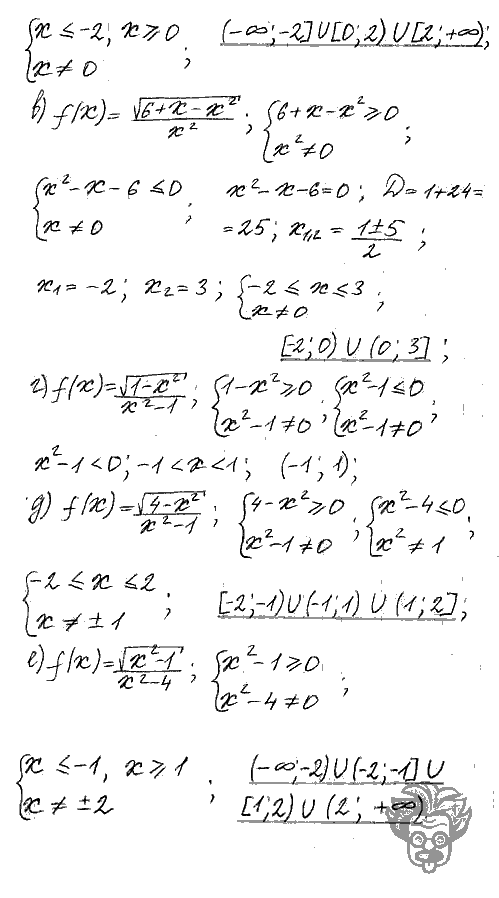 {x ≤ -2; x ≥ 0
{x ≠ 0 ; (-∞;-2]∪[0;2)∪[2;+∞);
в) f(x)= √(6+x-x²)/x² ; {6+x-x² ≥ 0
{x² ≠ 0 ;
{x²-x-6 ≤ 0 ; x²-x-6=0; D=1+24=
{x ≠ 0 =25; x₁,₂ = (1±5)/2 ;
x₁=-2; x₂=3; {-2 ≤ x ≤ 3
{x ≠ 0 ;
[-2;0) ∪ (0;3] ;
г) f(x)= √(1-x²)/(x²-1) ; {1-x² ≥ 0 ; {x²-1 ≤ 0
{x²-1 ≠ 0 {x²-1 ≠ 0 ;
x²-1<0; -1<x<1; (-1;1);
д) f(x)= √(4-x²)/(x²-1) ; {4-x² ≥ 0 ; {x²-4 ≤ 0
{x²-1 ≠ 0 {x² ≠ 1 ;
{-2 ≤ x ≤ 2
{x ≠ ±1 ; [-2;-1)∪(-1;1) ∪ (1;2];
е) f(x)= √(x²-1)/(x²-4) ; {x²-1 ≥ 0
{x²-4 ≠ 0 ;
{x ≤ -1, x ≥ 1 ; (-∞;-2)∪(-2;-1]∪
{x ≠ ±2 [1;2)∪(2; +∞)